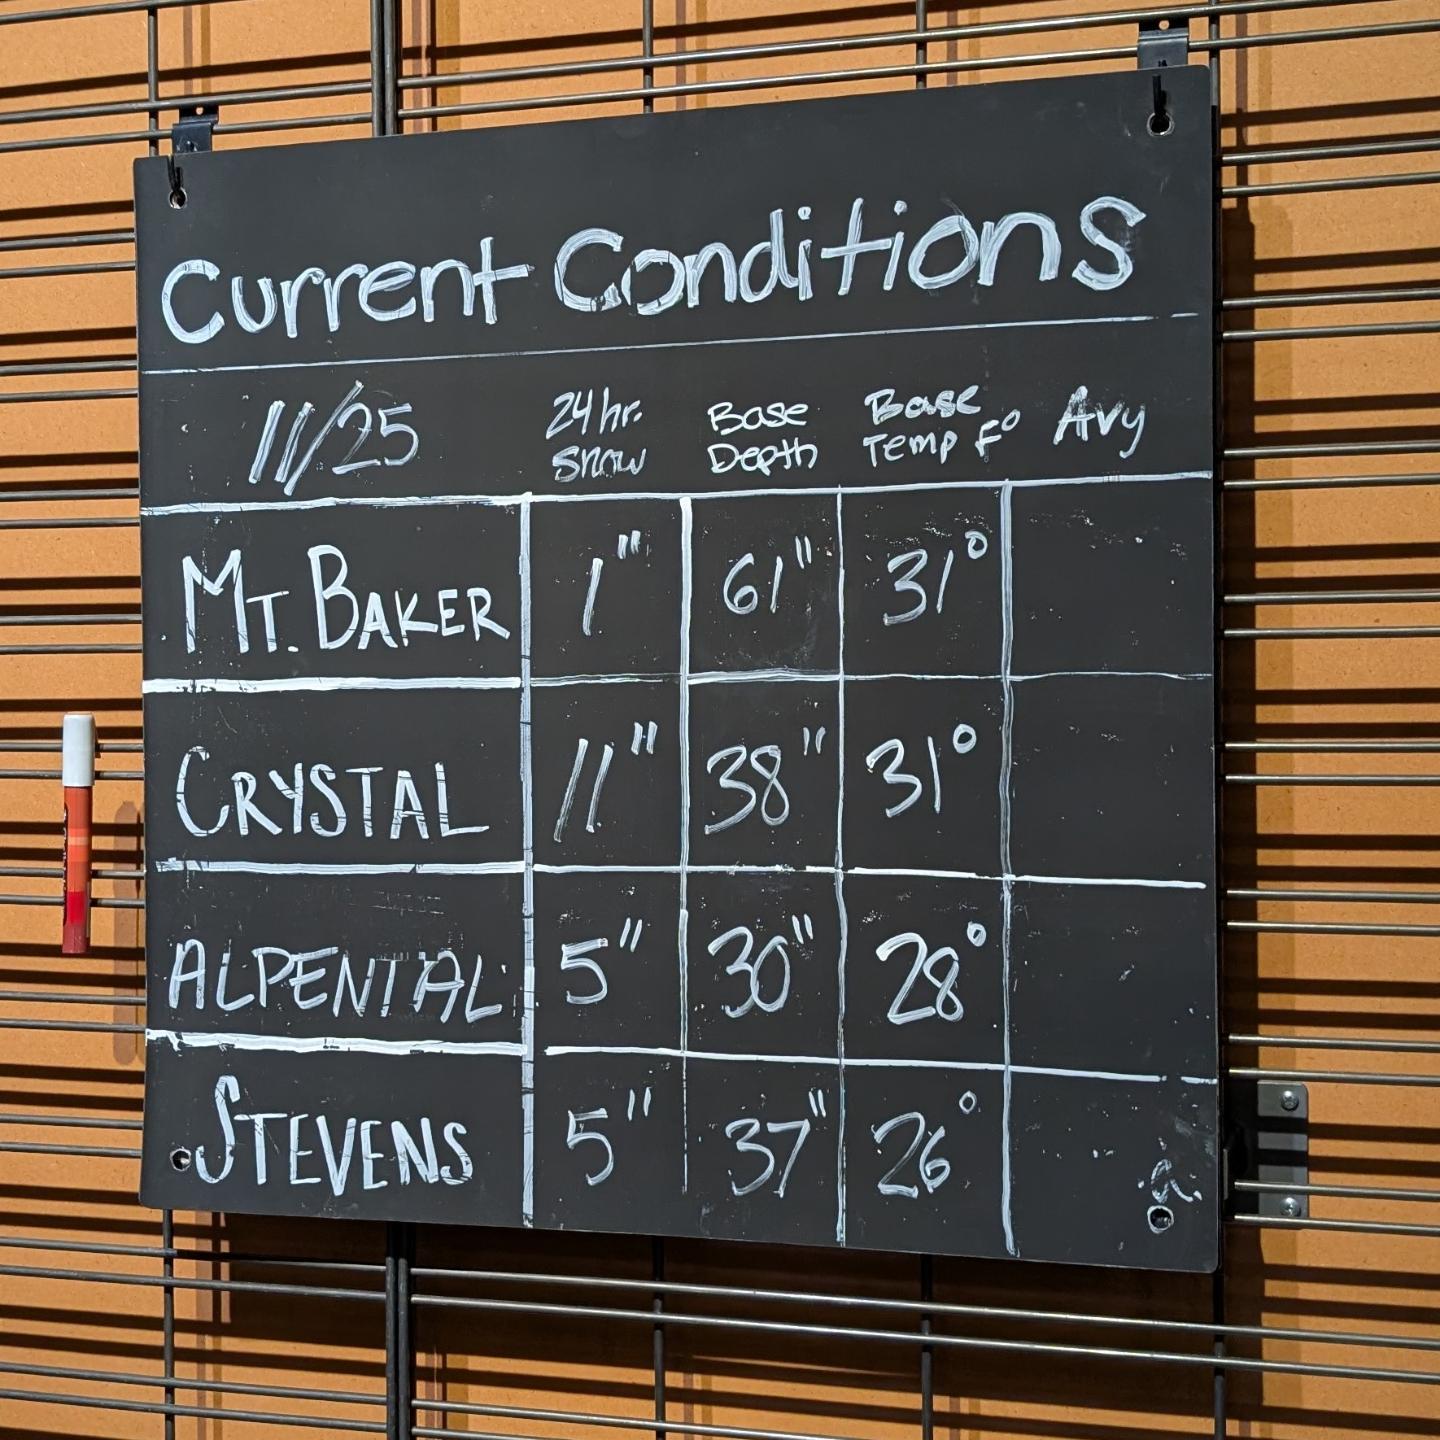 Current Conditions
11/25 24 hr. Snow Base Depth Base Temp F° Avy
MT. BAKER 1" 61" 31°
CRYSTAL 11" 38" 31°
ALPENTAL 5" 30" 28°
STEVENS 5" 37" 26°
a.